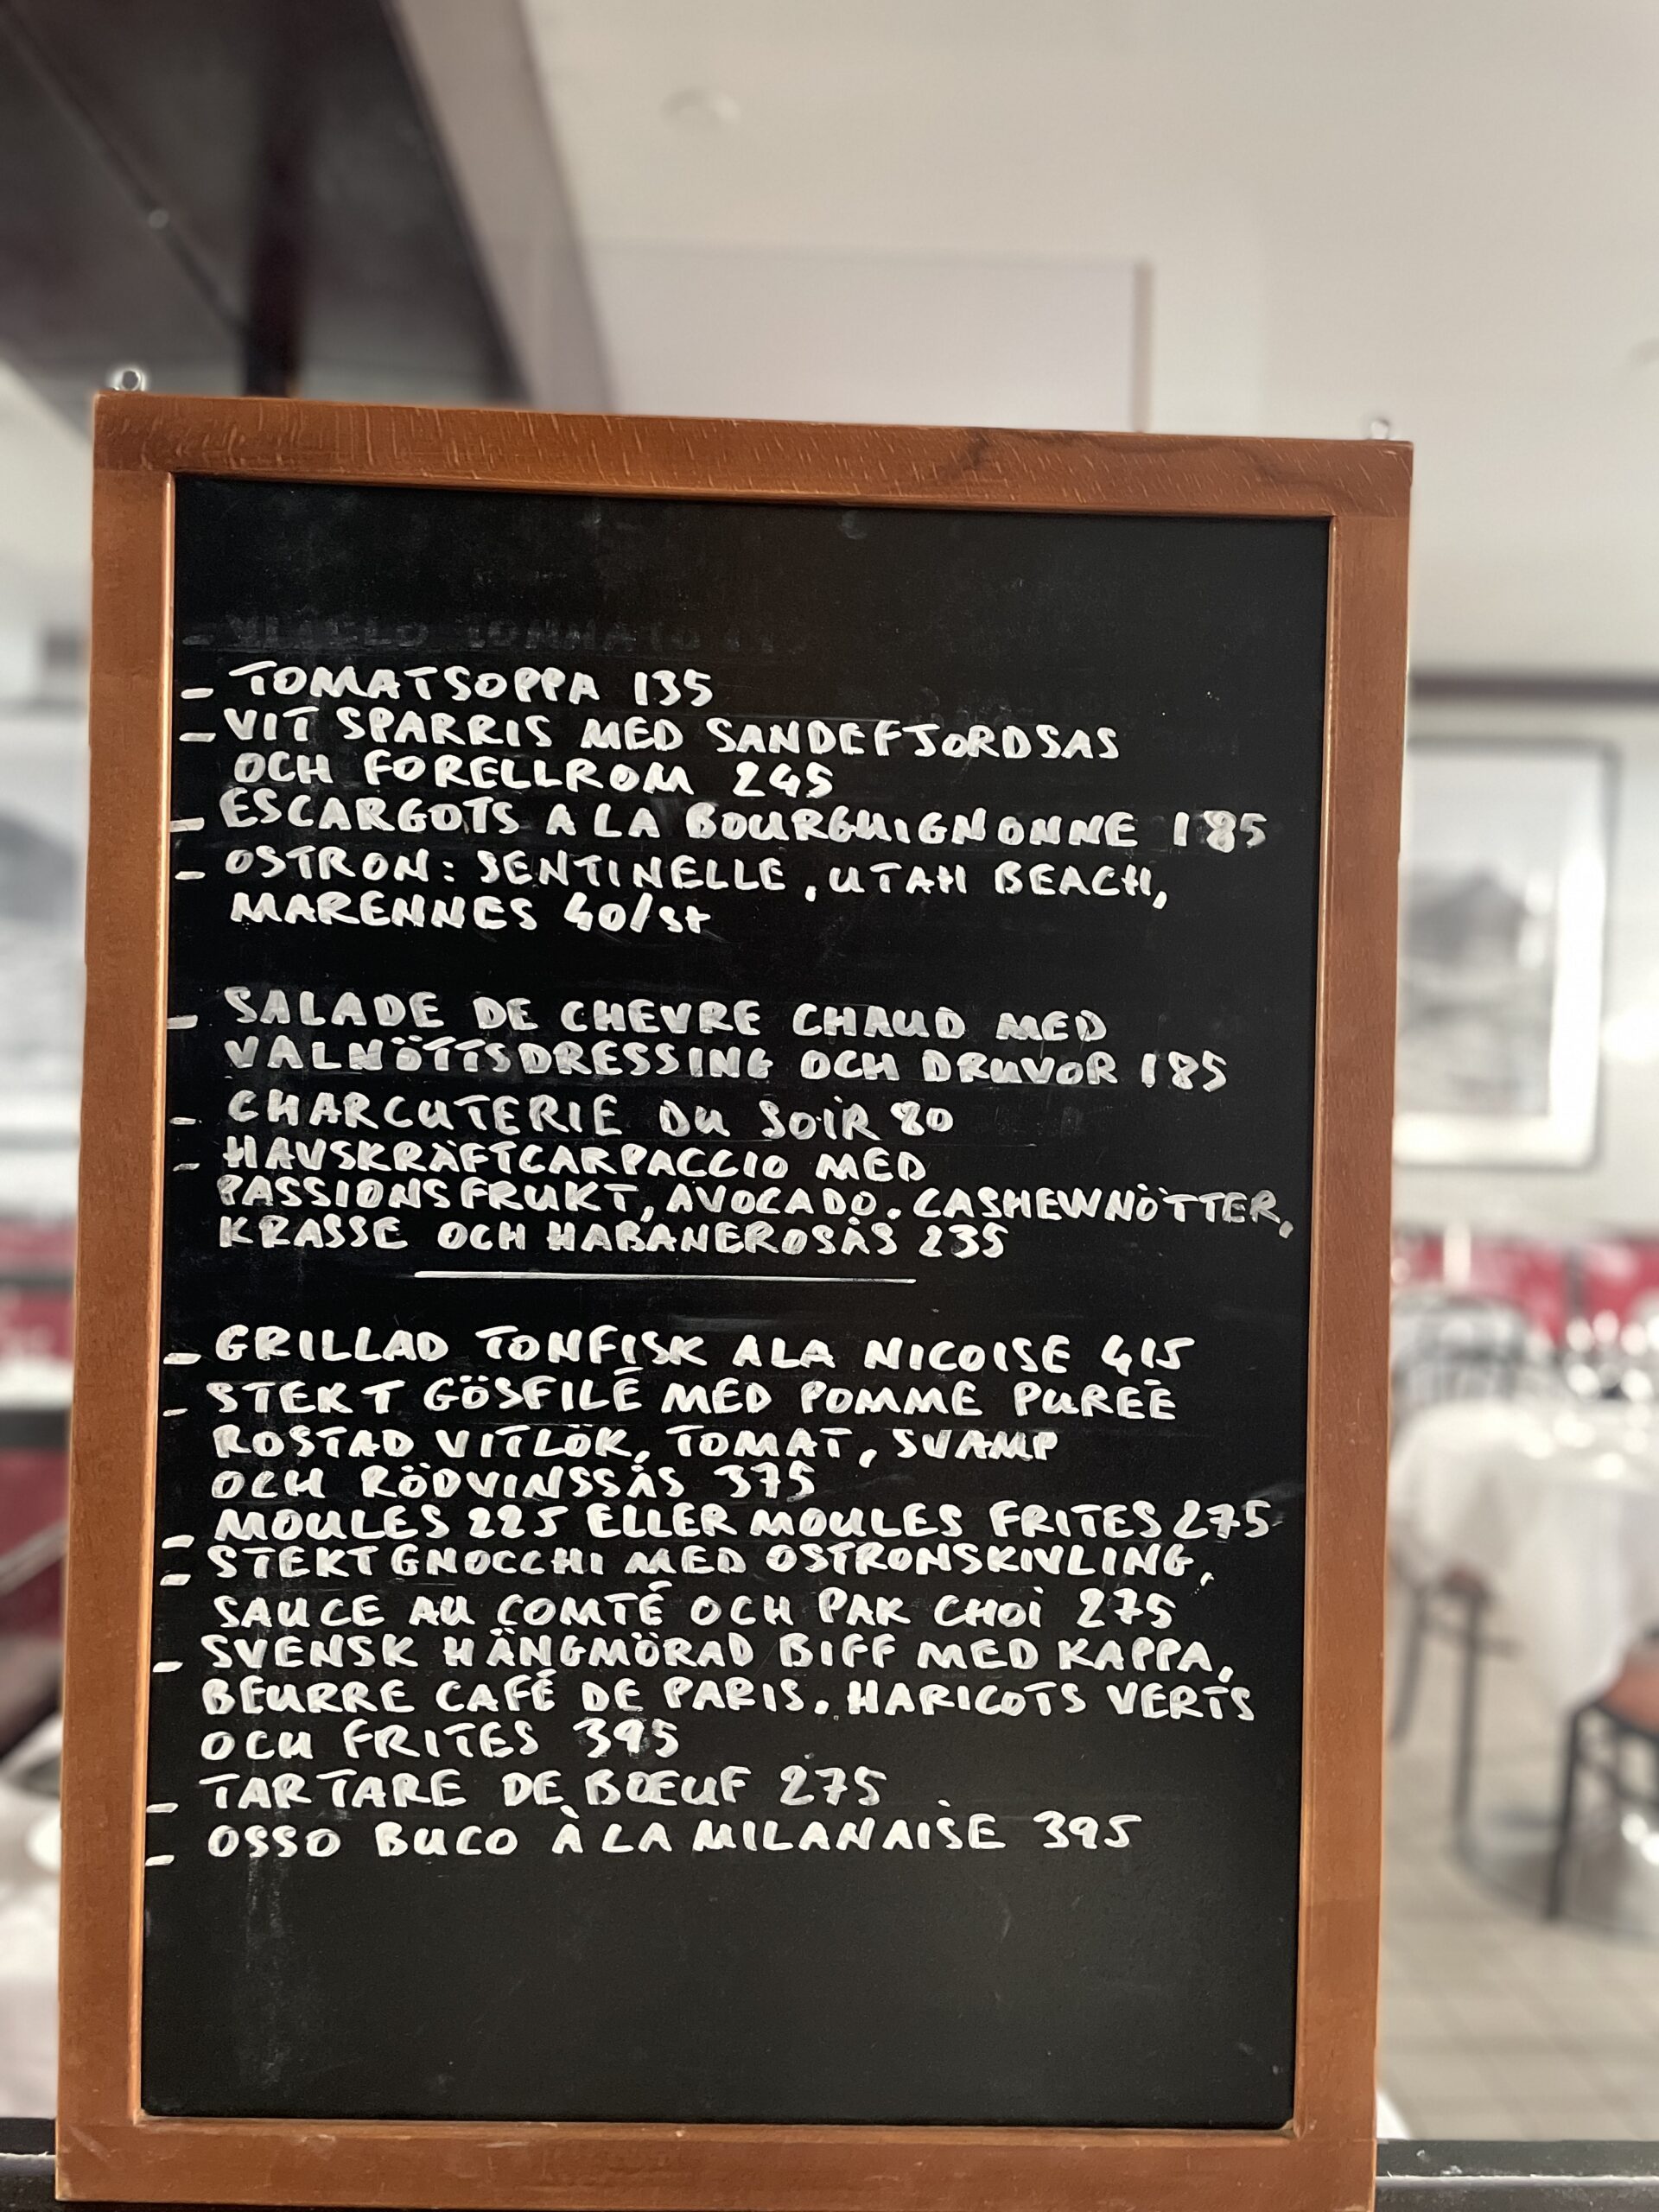 - TOMATSOPPA 135
- VIT SPARRIS MED SANDEFJORDSAS
OCH FORELLROM 245
- ESCARGOTS A LA BOURGUIGNONNE 185
- OSTRON: SENTINELLE, UTAH BEACH,
MARENNES 40/st
- SALADE DE CHEVRE CHAUD MED
VALNÖTTSDRESSING OCH DRUVOR 185
- CHARCUTERIE DU SOIR 80
- HAVSKRÄFTCARPACCIO MED
PASSIONSFRUKT, AVOCADO, CASHEWNÖTTER,
KRASSE OCH HABANEROSÅS 235
- GRILLAD TONFISK A LA NICOISE 415
- STEKT GÖSFILÉ MED POMME PUREÉ
ROSTAD VITLÖK, TOMAT, SVAMP
OCH RÖDVINSSÅS 375
- MOULES 225 ELLER MOULES FRITES 275
- STEKT GNOCCHI MED OSTRONSKIVLING,
SAUCE AU COMTÉ OCH PAK CHOI 275
- SVENSK HÄNGMÖRAD BIFF MED KAPPA,
BEURRE CAFÉ DE PARIS, HARICOTS VERTS
OCH FRITES 395
- TARTARE DE BŒUF 275
- OSSO BUCO À LA MILANAISE 395